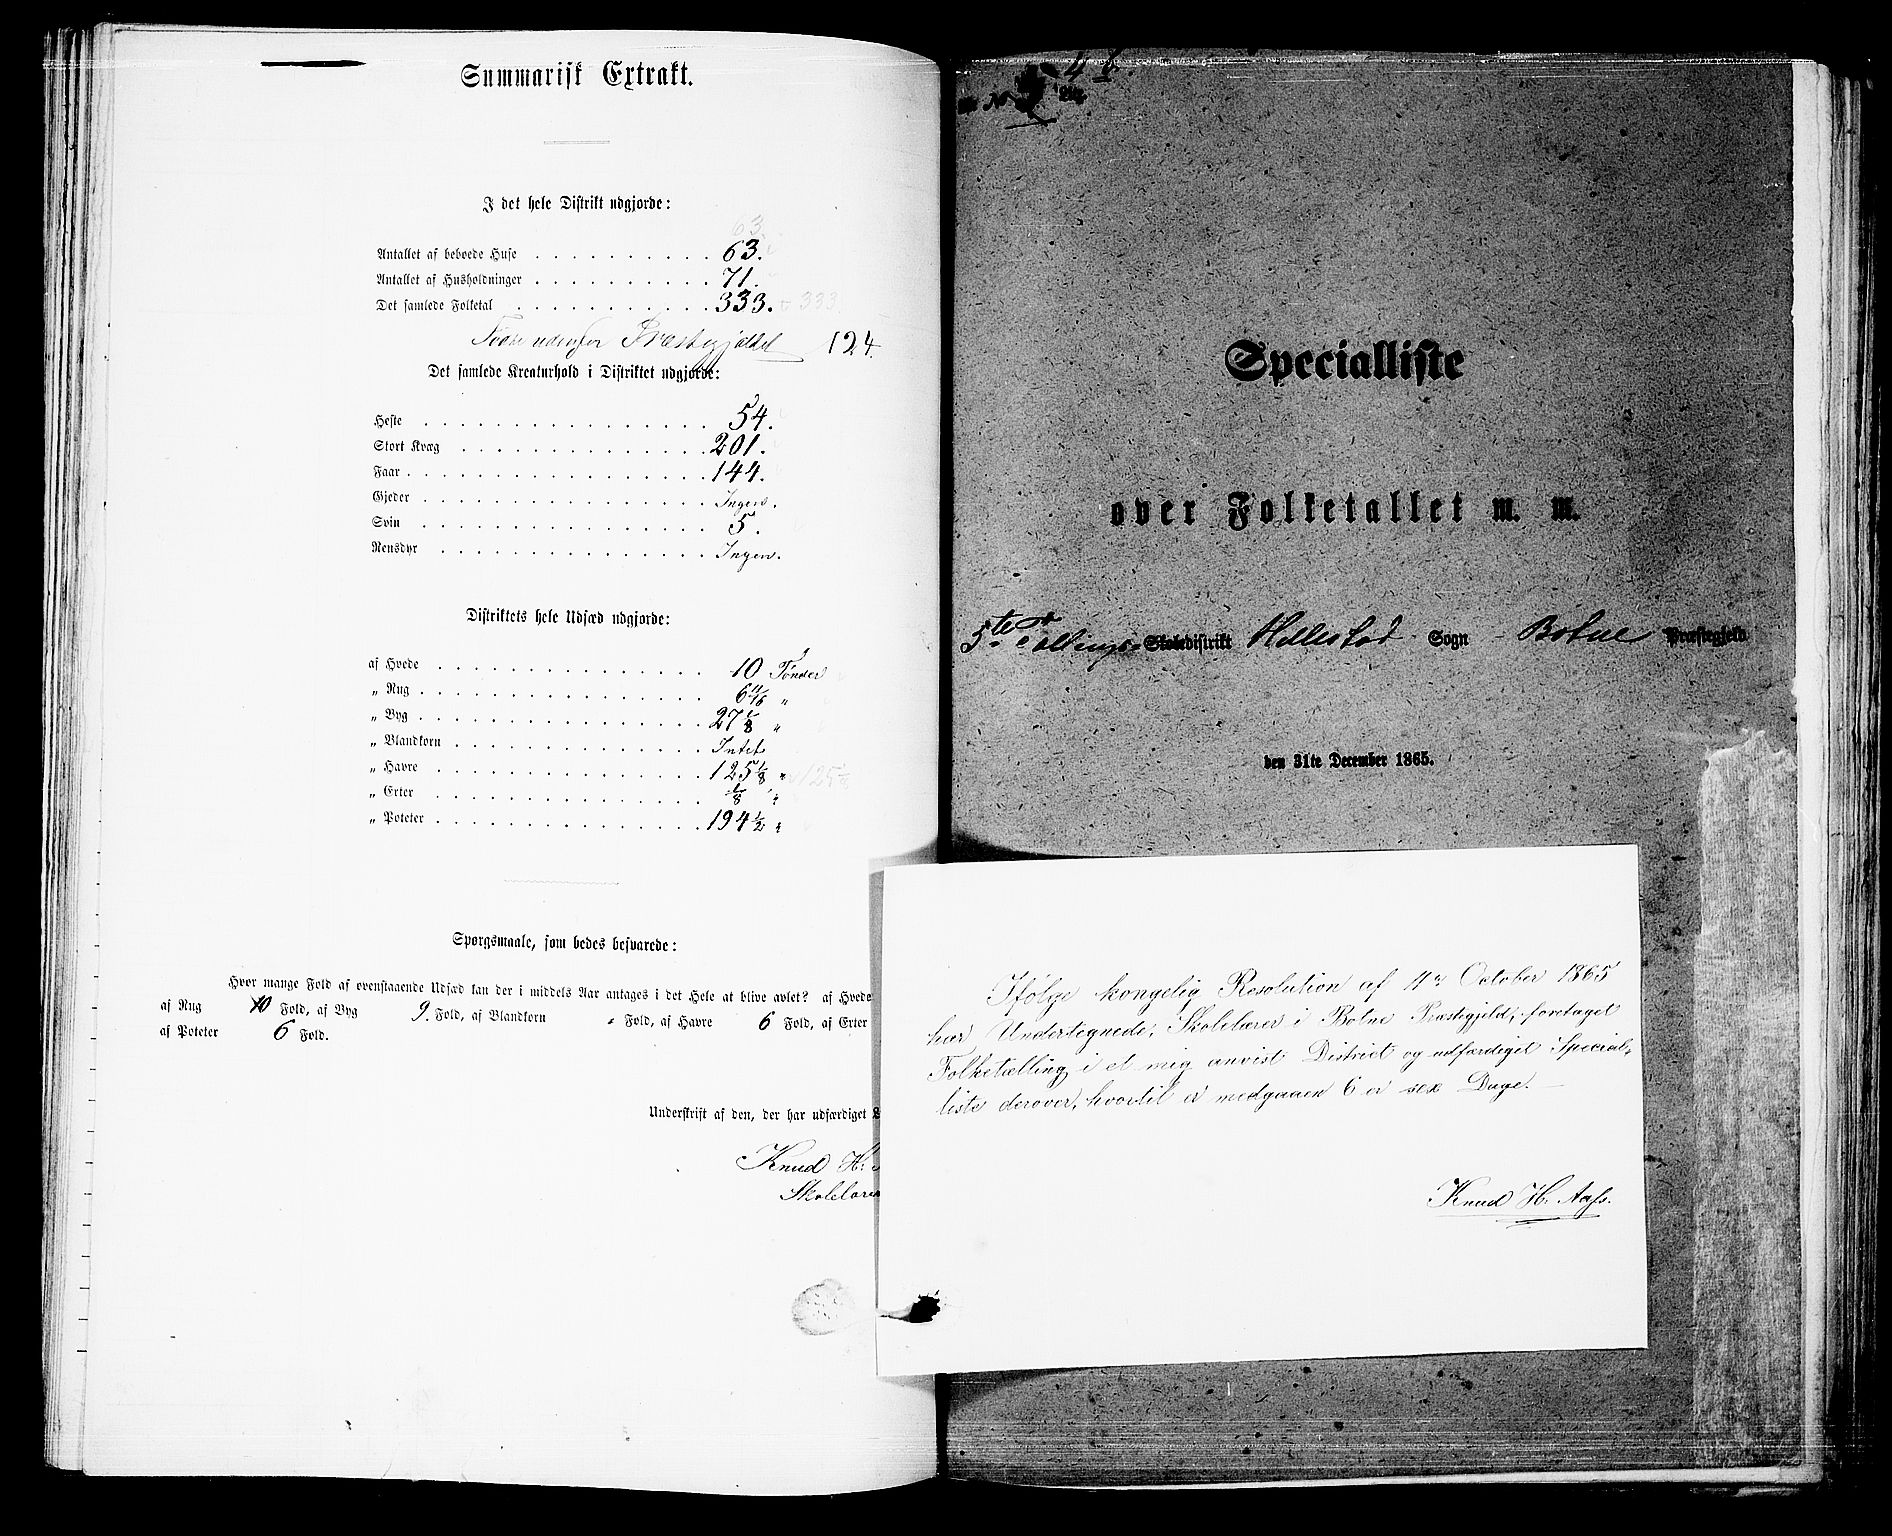 Summarisk Extrakt.
I det hele Distrikt udgjorde:
63.
Antallet af beboede Huse . . . . . . . . . . 63.
Antallet af Husholdninger . . . . . . . . . . 71.
Det samlede Folketal . . . . . . . . . . . 333. 333
Fødte udenfor Præstegjeldet 124.
Det samlede Kreaturhold i Distriktet udgjorde:
Heste . . . . . . . . . . . . . . . . 54.
Stort Kvæg . . . . . . . . . . . . . . 201.
Faar . . . . . . . . . . . . . . . . . 144.
Gjeder . . . . . . . . . . . . . . . . Ingen.
Svin . . . . . . . . . . . . . . . . 5.
Rensdyr . . . . . . . . . . . . . . . Ingen.
Distriktets hele Udsæd udgjorde:
af Hvede . . . . . . . . . . . . . . . 10 Tønder
„ Rug . . . . . . . . . . . . . . . . 6 11/16 „
„ Byg . . . . . . . . . . . . . . . . 27 1/8 „
„ Blandkorn . . . . . . . . . . . . . . Intet
„ Havre . . . . . . . . . . . . . . . 125 1/8 „
„ Erter . . . . . . . . . . . . . . . . 1/8 „
„ Poteter . . . . . . . . . . . . . . . 194 1/2 „
Spørgsmaale, som bedes besvarede:
Hvor mange Fold af ovenstaaende Udsæd kan der i middels Aar antages i det Hele at blive avlet? af Hvede
af Rug 10 Fold, af Byg 9. Fold, af Blandkorn „ Fold, af Havre 6 Fold, af Erter
af Poteter 6 Fold.
Underskrift af den, der har udfærdiget
Knud H.
Skolelærer
Specialliste
over Folketallet m. m.
5te Tællings-Skoledistrikt Hillestad Sogn Botne Præstegjeld
den 31te December 1865.
Ifølge kongelig Resolution af 11n October 1865
har Undertegnede, Skolelærer i Botne Præstegjeld, foretaget
Folketælling i et mig anvist District og udfærdiget Special-
liste derover, hvortil er medgaaen 6 er sex Dage. —
Knud H. Aass.